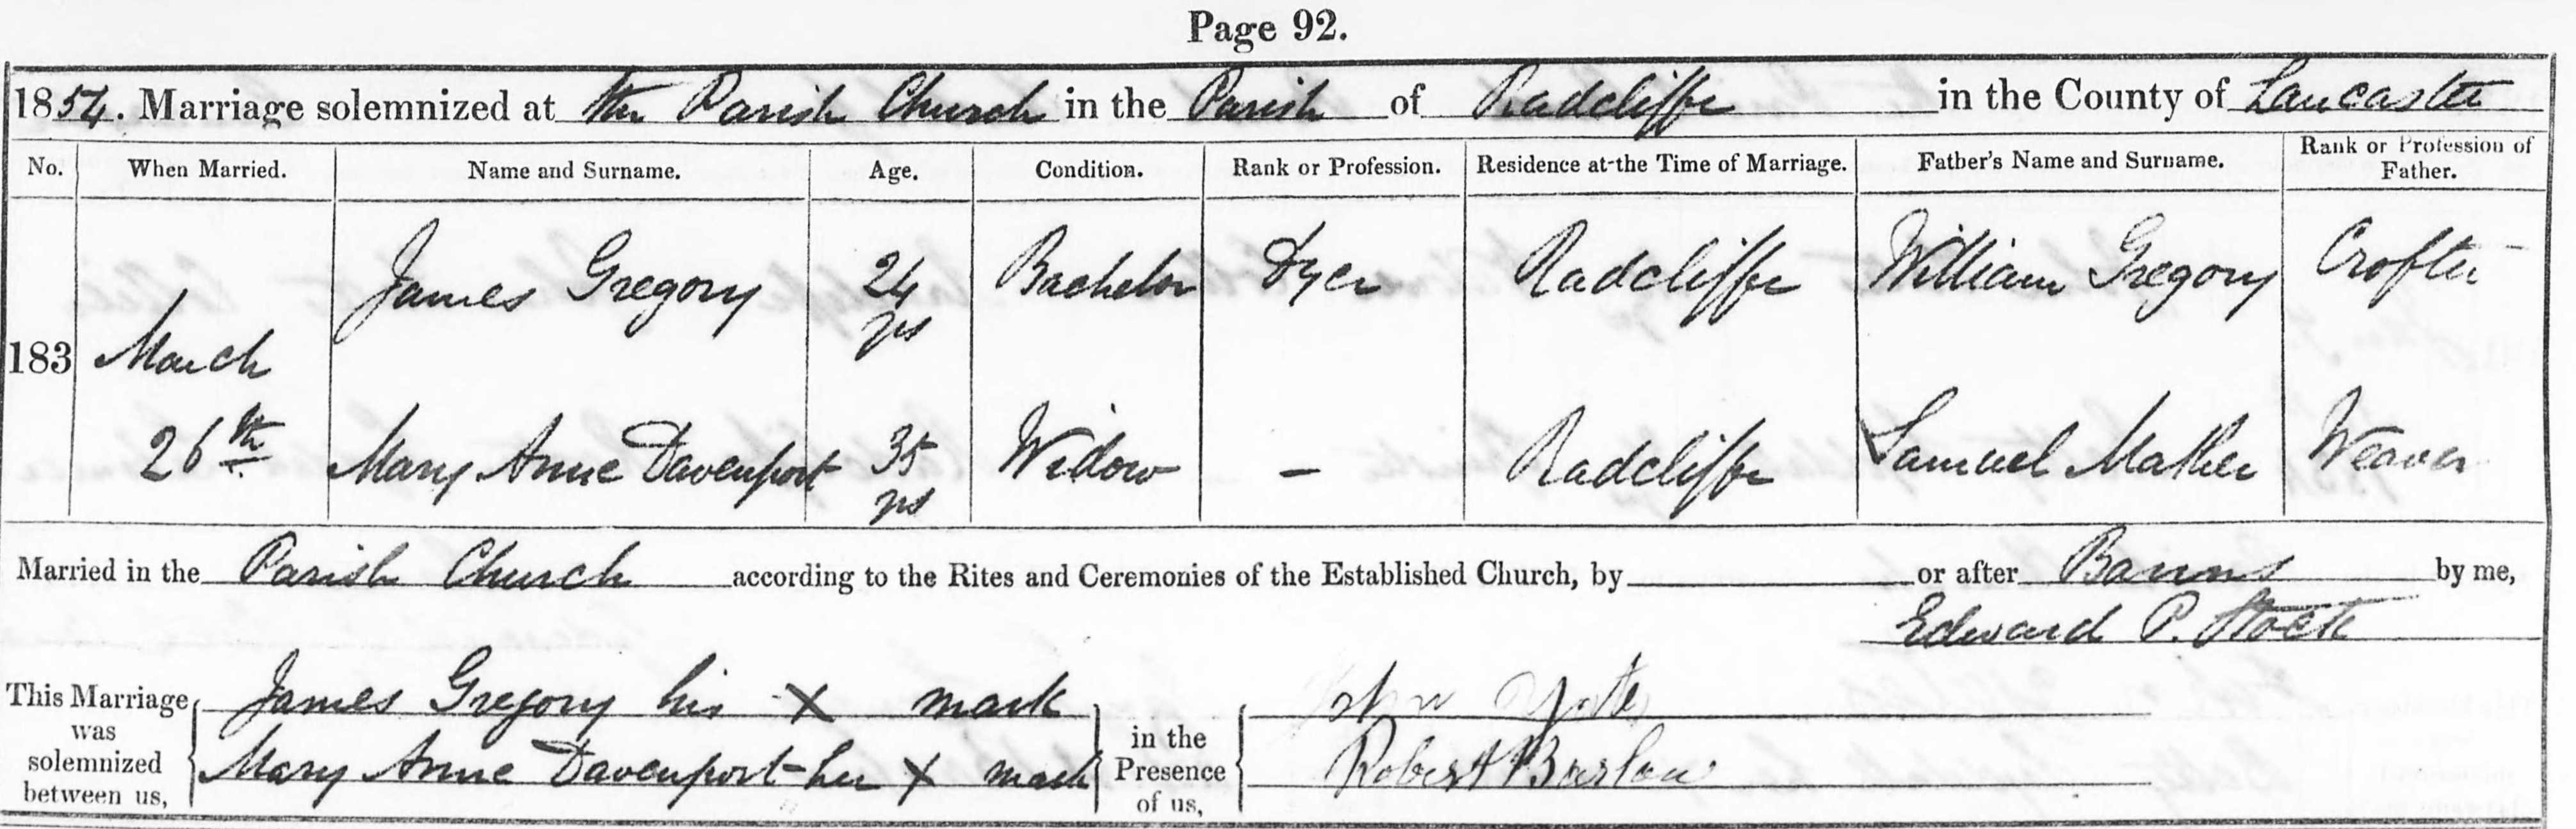 Page 92.
1854. Marriage solemnized at the Parish Church in the Parish of Radcliffe in the County of Lancaster
No. When Married. Name and Surname. Age. Condition. Rank or Profession. Residence at the Time of Marriage. Father's Name and Surname. Rank or Profession of Father.
183 March 26th James Gregory 24 yrs Bachelor Dyer Radcliffe William Gregory Crofter
Mary Anne Davenport 35 yrs Widow - Radcliffe Samuel Mather Weaver
Married in the Parish Church according to the Rites and Ceremonies of the Established Church, by or after Banns by me,
Edward P.
This Marriage was solemnized between us, James Gregory his X mark in the Presence of us, John
Mary Anne Davenport her X mark Robert Barlow